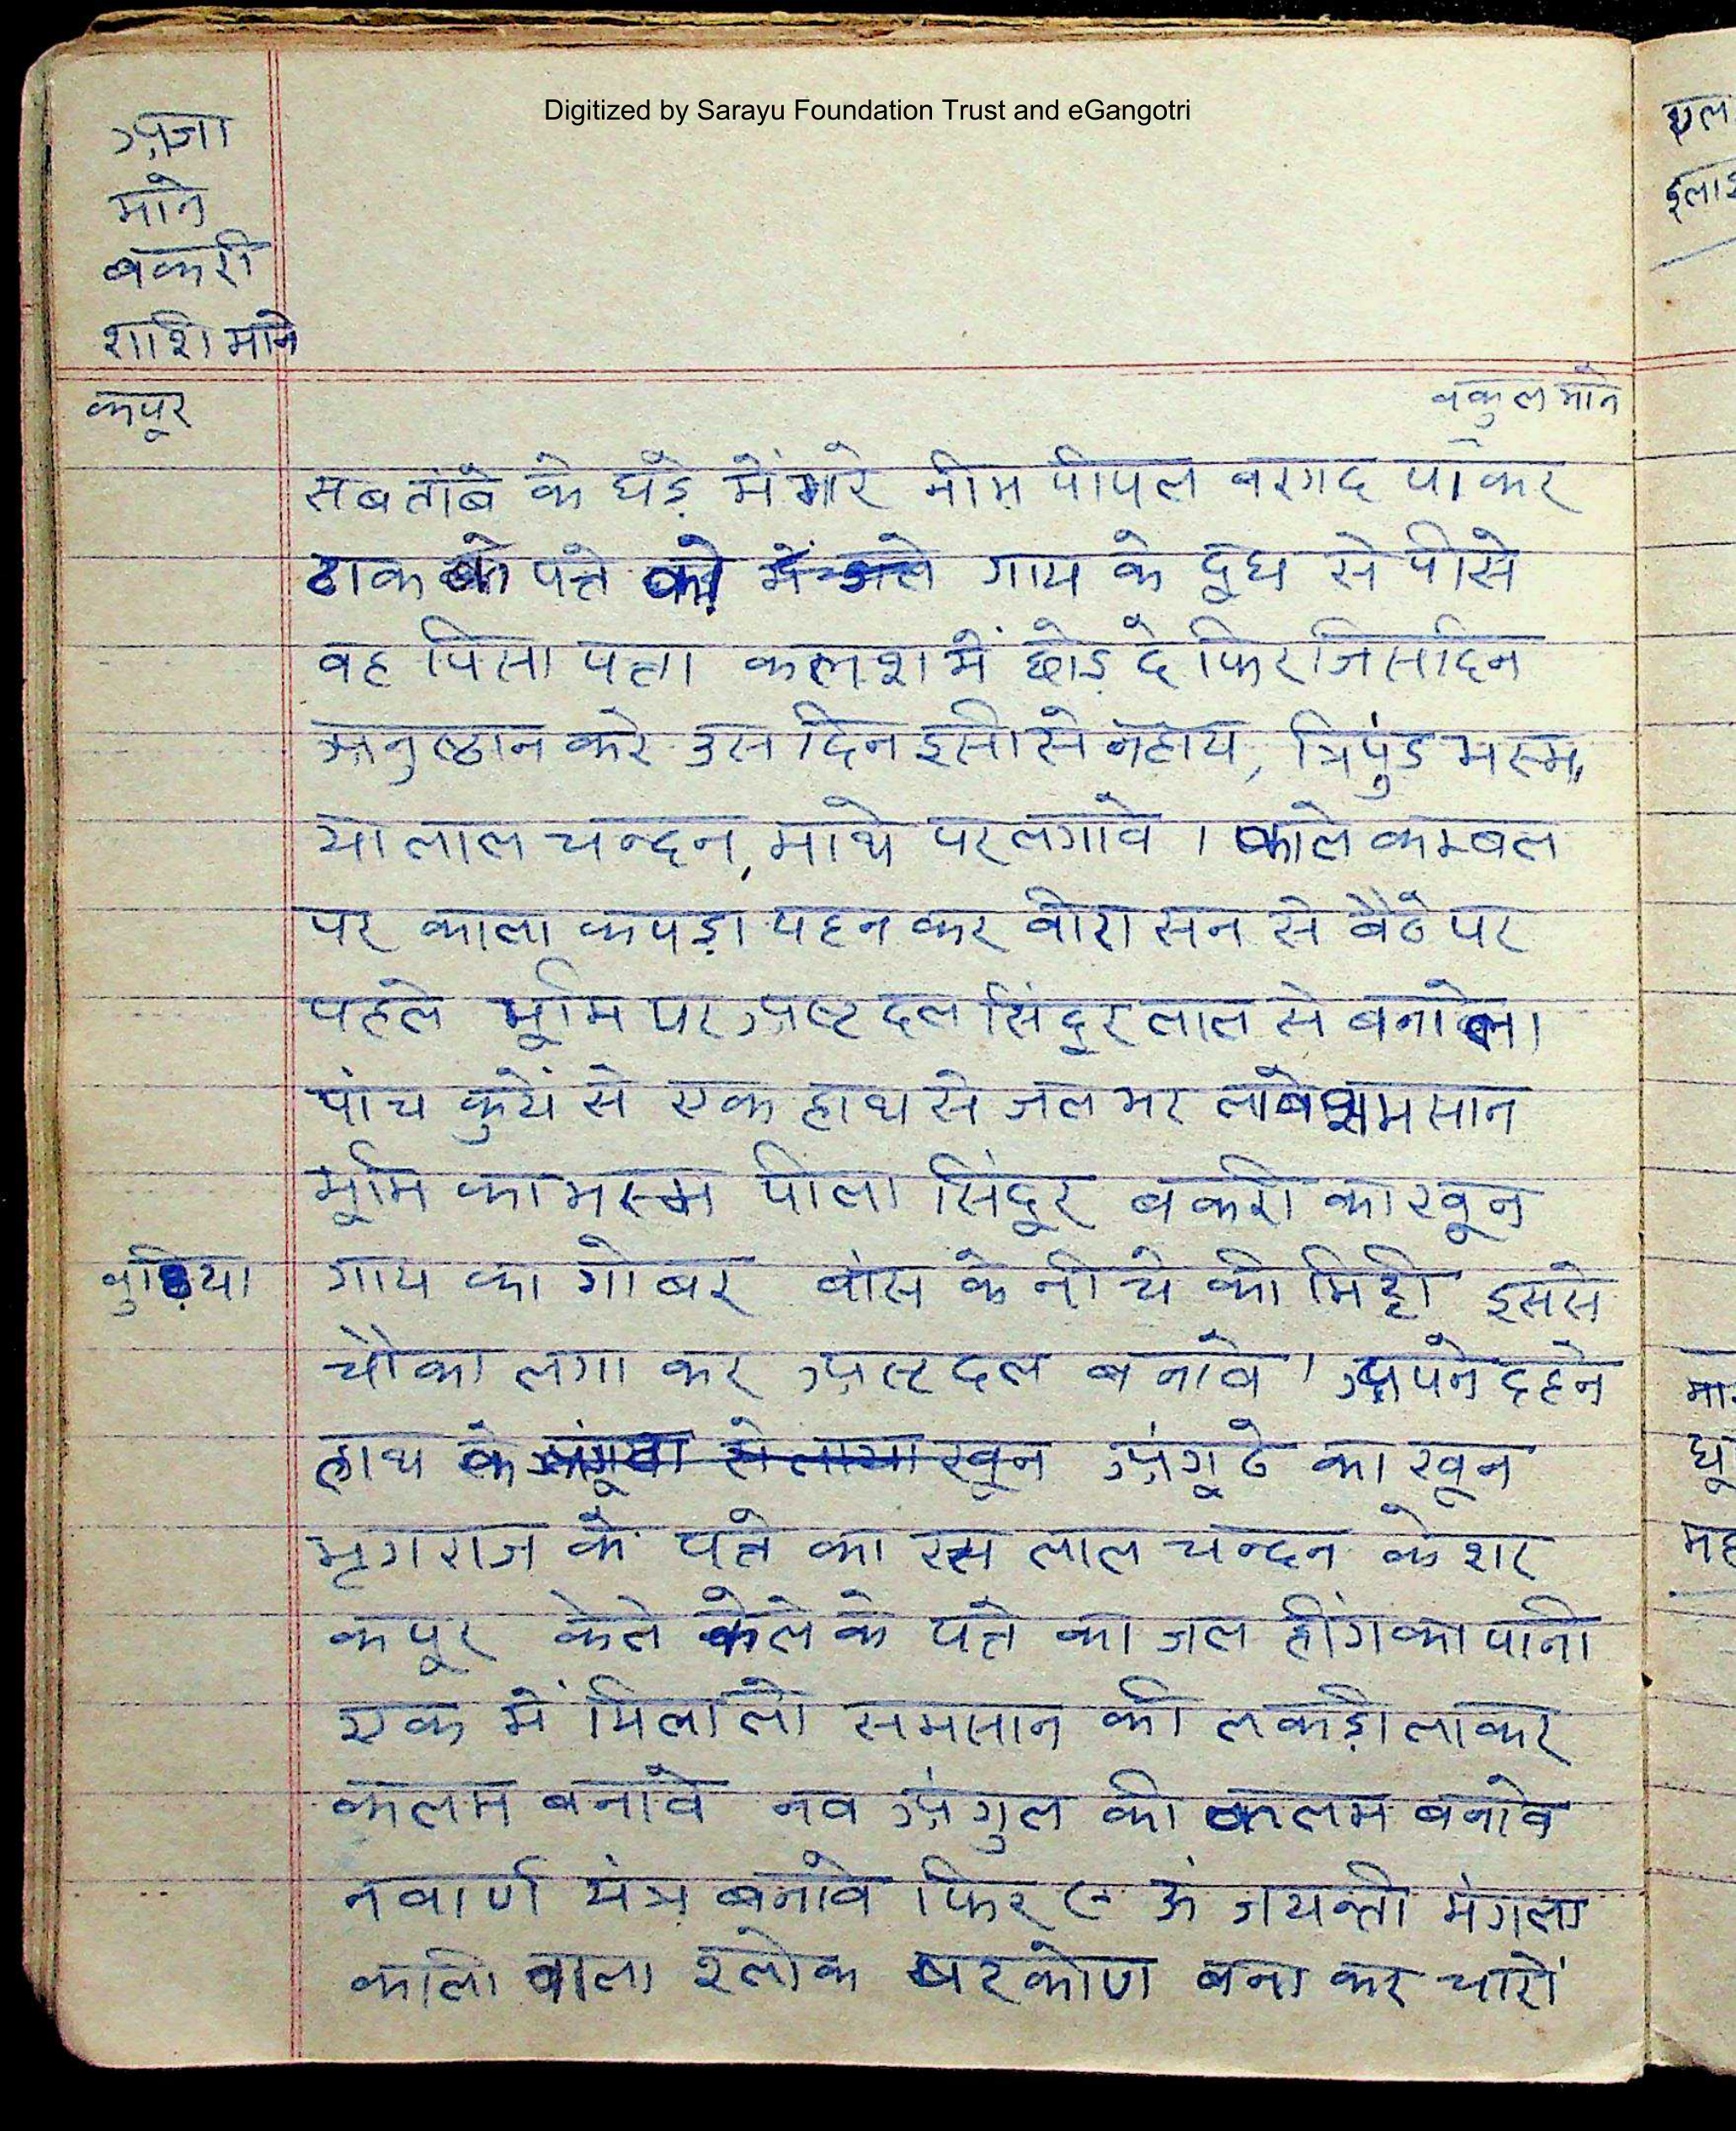 Digitized by Sarayu Foundation Trust and eGangotri
अजा
माने
बकरी
शशि माने
कपूर
वकुल माने
सब तांबे के घड़े में भरे नीम पीपल बरगद पाकर
ढाक के पत्ते को गाय के दूध से पीसे
वह पिसा पत्ता कलश में छोड़ दे फिर जिस दिन
अनुष्ठान करे उस दिन इसी से नहाय, त्रिपुंड भस्म,
या लाल चन्दन, माथे पर लगावे । काले कम्बल
पर काला कपड़ा पहन कर वीरासन से बैठे पर
पहले भूमि पर अष्टदल सिंदूर लाल से बनावे
पांच कुयें से एक हाथ से जल भर लावे शमसान
भूमि का भस्म पीला सिंदूर बकरी का खून
गाय का गोबर बांस के नीचे की मिट्टी इससे
चौका लगा कर अष्टदल बनावे । अपने दहने
हाथ के खून अंगूठे का खून
भृगराज के पत्ते का रस लाल चन्दन केशर
कपूर केले केले के पत्ते का जल हींग का पानी
एक में मिला लो समसान की लकड़ी लाकर
कलम बनावे नव अंगुल की कलम बनावे
नवार्ण यंत्र बनावे फिर ऊं जयन्ती मंगला
काली वाला श्लोक षटकोण बना कर चारों